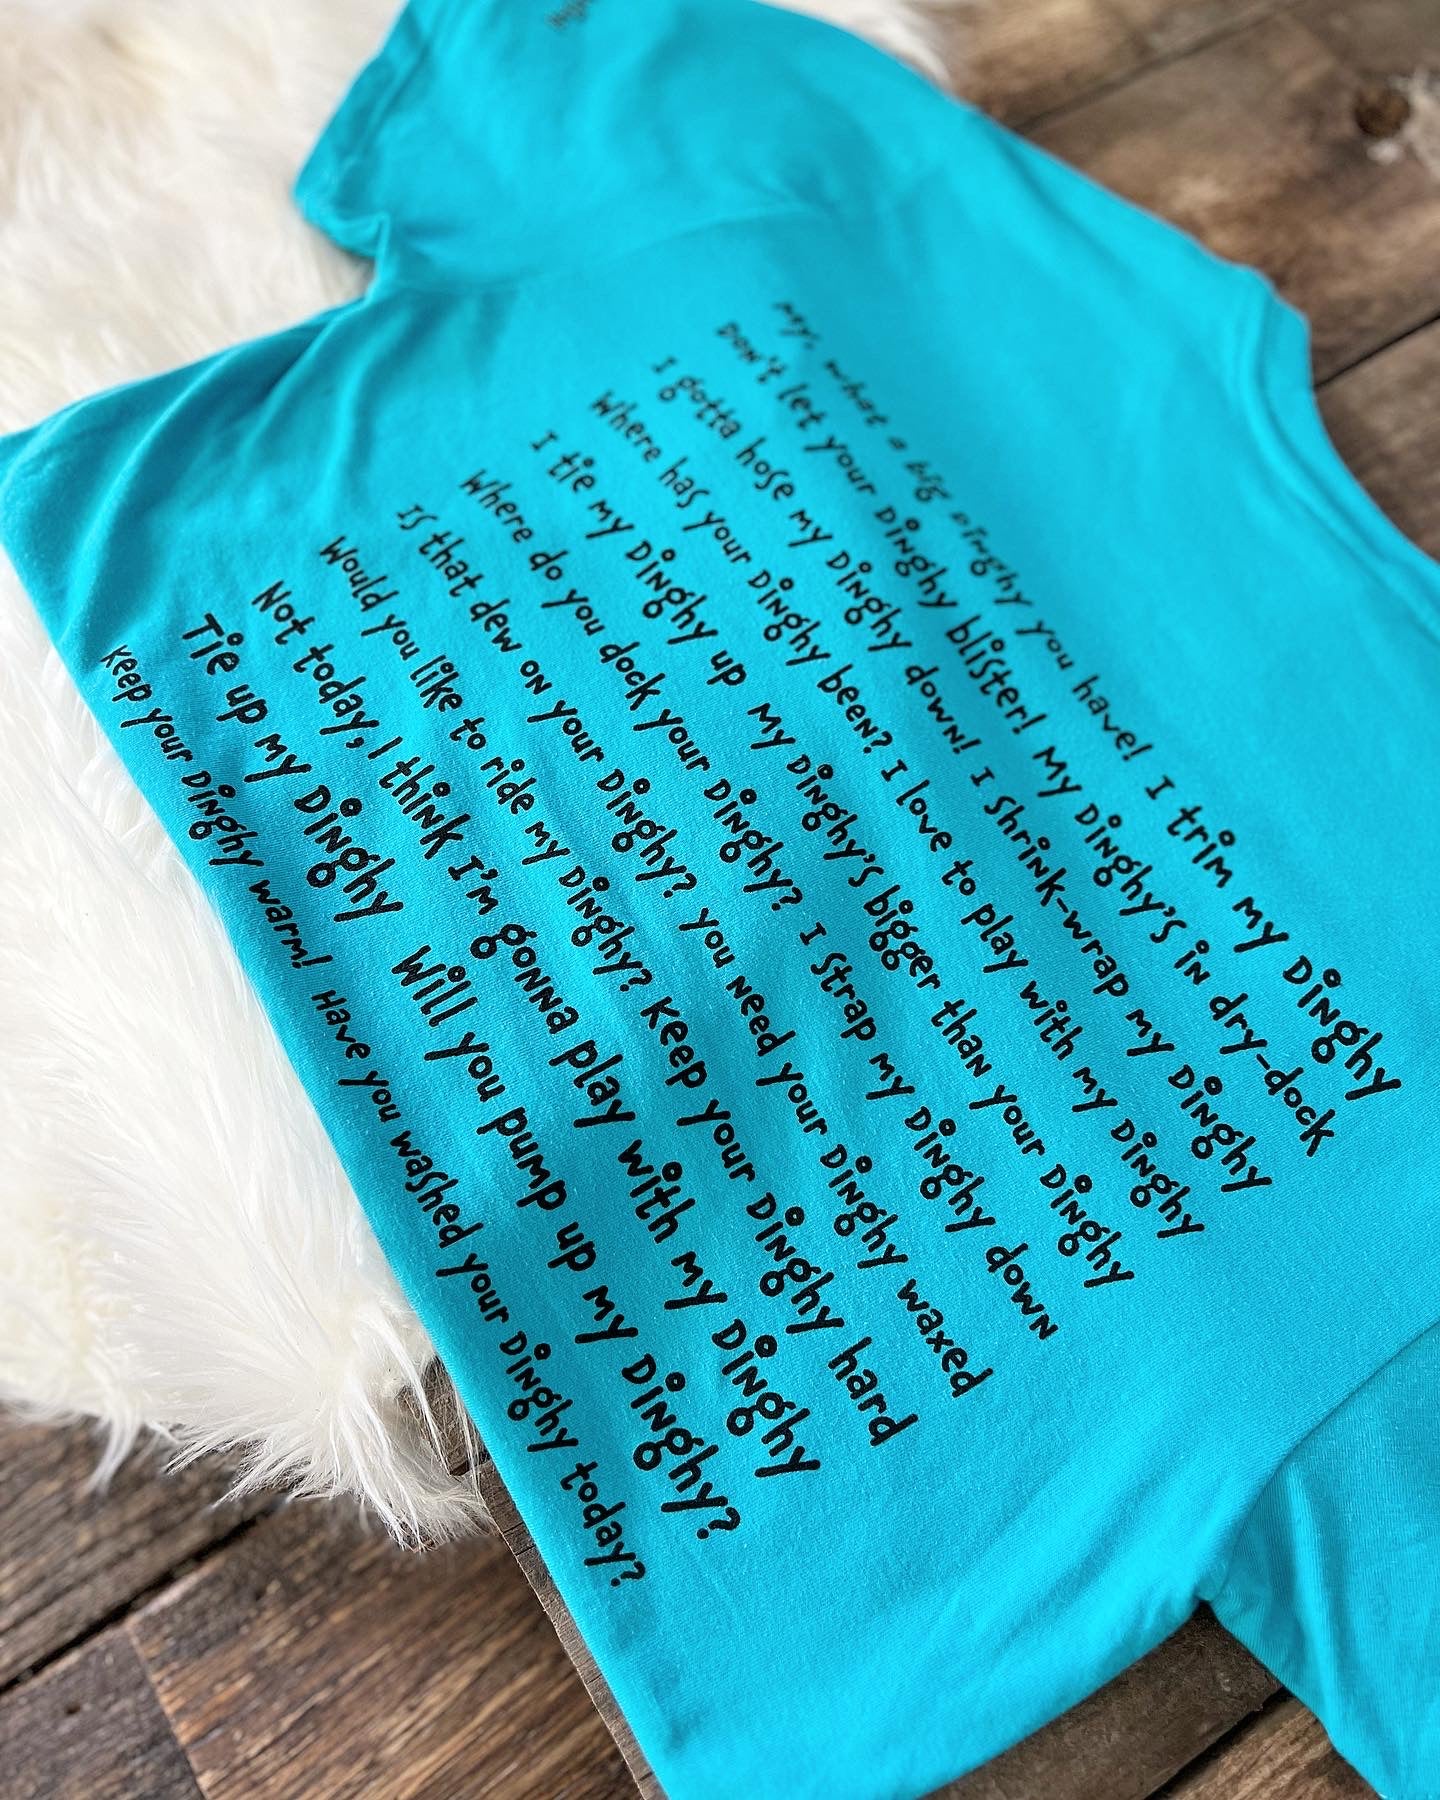 My, what a big Dinghy you have! I trim my Dinghy
Don't let your Dinghy blister! My Dinghy's in dry-dock
I gotta hose my Dinghy down! I Shrink-wrap my Dinghy
Where has your Dinghy been? I love to play with my Dinghy
I tie my Dinghy up My Dinghy's bigger than your Dinghy
Where do you dock your Dinghy? I Strap my Dinghy down
Is that dew on your Dinghy? You need your Dinghy waxed
Would you like to ride my Dinghy? Keep your Dinghy hard
Not today, I think I'm gonna play with my Dinghy
Tie up my Dinghy Will you pump up my Dinghy?
Keep your Dinghy warm! Have you washed your Dinghy today?